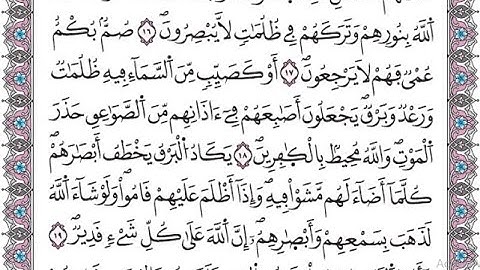 اَللَّهُ بِنُورِهِمْ وَتَرَكَهُمْ فِے ظُلُمَٰتٖ لَّا يُبْصِرُونَۖ ١٦ صُمُّۢ بُكْمٌ
عُمْيٞ فَهُمْ لَا يَرْجِعُونَۖ ١٧ أَوْ كَصَيِّبٖ مِّنَ اَلسَّمَآءِ فِيهِ ظُلُمَٰتٞ
وَرَعْدٞ وَبَرْقٞۖ يَجْعَلُونَ أَصَٰبِعَهُمْ فِےٓ ءَاذَانِهِم مِّنَ اَلصَّوَٰعِقِ حَذَرَ
اَلْمَوْتِۖ وَاللَّهُ مُحِيطُۢ بِالْكَٰفِرِينَۖ ١٨ يَكَادُ اُلْبَرْقُ يَخْطَفُ أَبْصَٰرَهُمْۖ
كُلَّمَآ أَضَآءَ لَهُم مَّشَوْاْ فِيهِۖ وَإِذَآ أَظْلَمَ عَلَيْهِمْ قَامُواْۖ وَلَوْ شَآءَ اَللَّهُ
لَذَهَبَ بِسَمْعِهِمْ وَأَبْصَٰرِهِمُۥٓۖ إِنَّ اَللَّهَ عَلَىٰ كُلِّ شَےْءٖ قَدِيرٞۖ ١٩